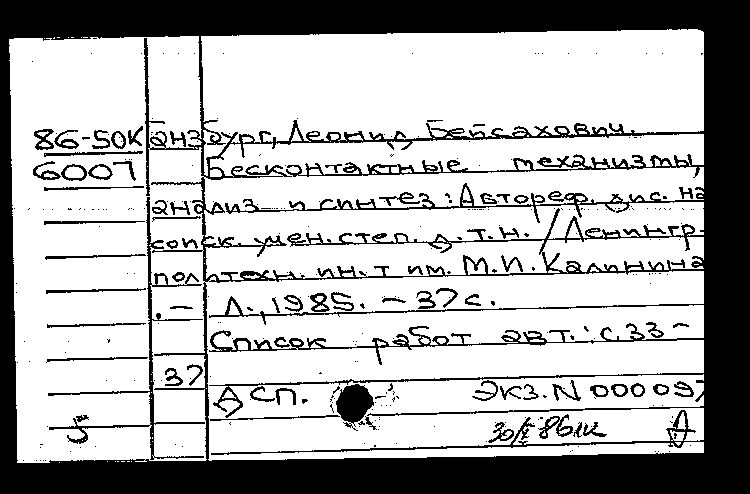 86-50К анзбург, Леонид Бейсахович.
6007 Бесконтактные механизмы,
анализ и синтез: Автореф. дис. на
соиск. учен. степ. д.т.н. / Ленингр.
политехн. ин.т им. М.И. Калинина
.- Л., 1985. - 37 с.
Список работ авт.: с. 33-
37
ДСП. Экз. N 000097
5 86 А